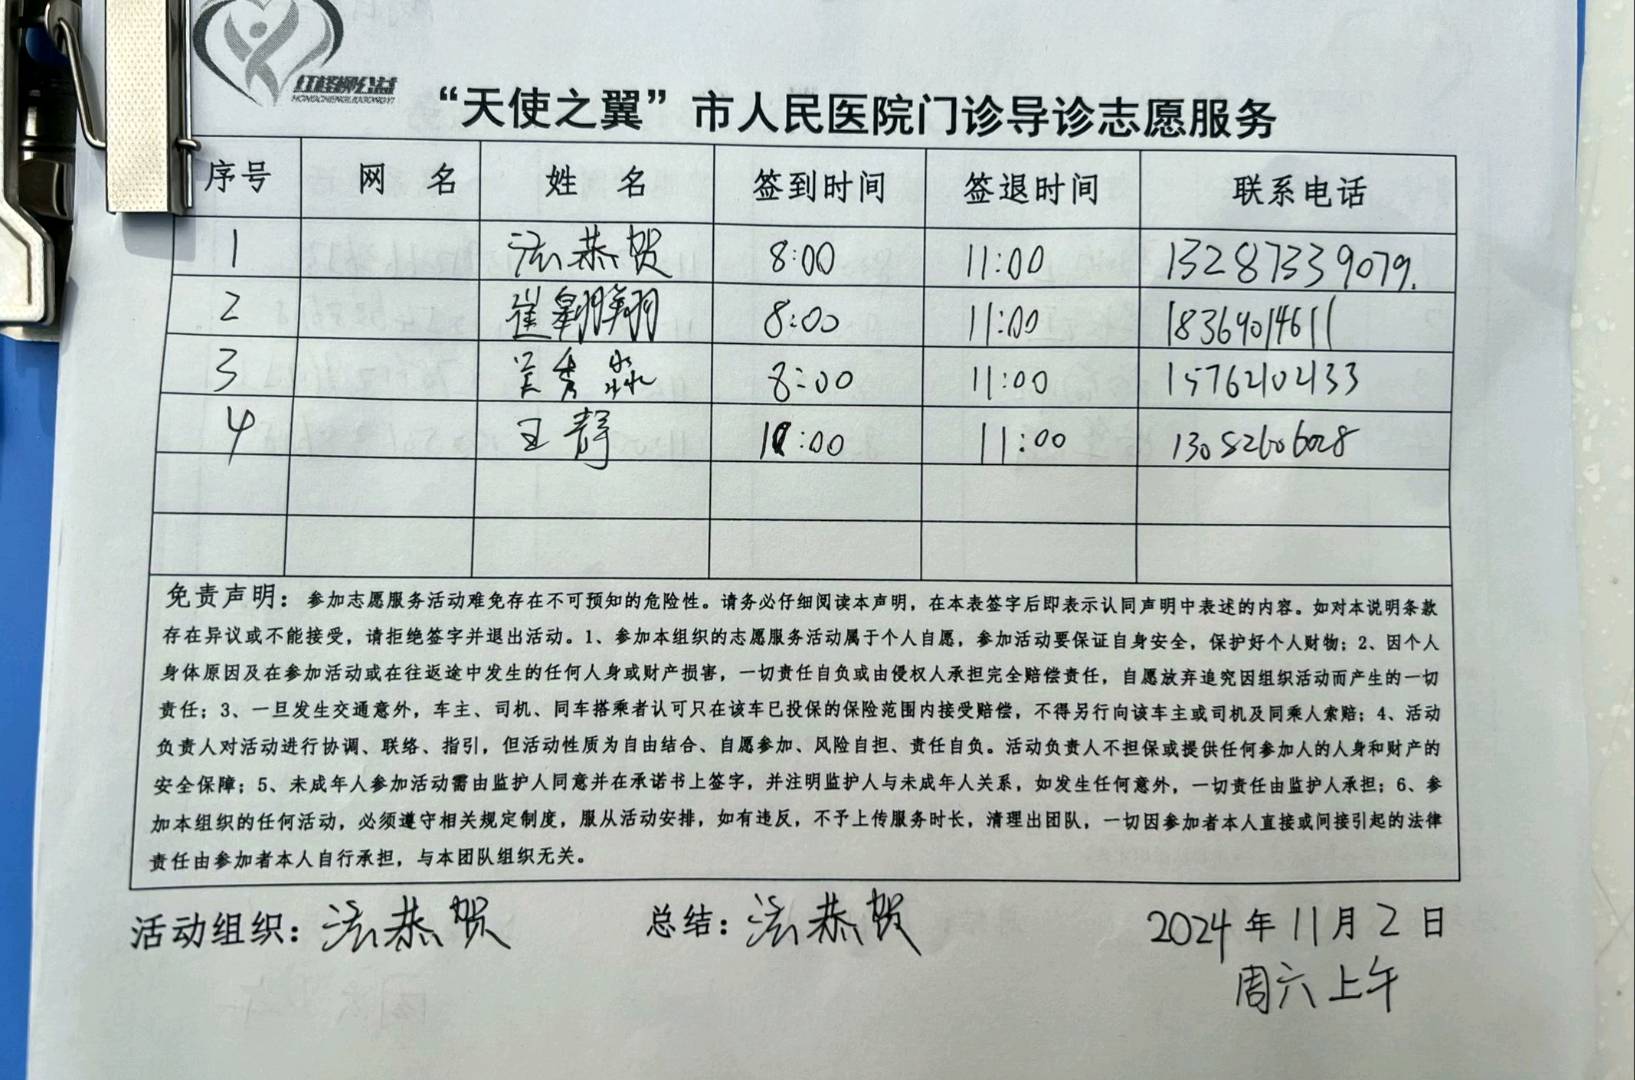 红柽柳公益
“天使之翼”市人民医院门诊导诊志愿服务
序号 网 名 姓 名 签到时间 签退时间 联系电话
1 法恭贺 8:00 11:00 13287339079.
2 崔翱翔 8:00 11:00 18369014611
3 吴秀淼 8:00 11:00 15762102133
4 王静 :00 11:00 13052606028
免责声明：参加志愿服务活动难免存在不可预知的危险性。请务必仔细阅读本声明，在本表签字后即表示认同声明中表述的内容。如对本说明条款
存在异议或不能接受，请拒绝签字并退出活动。1、参加本组织的志愿服务活动属于个人自愿，参加活动要保证自身安全，保护好个人财物；2、因个人
身体原因及在参加活动或在往返途中发生的任何人身或财产损害，一切责任自负或由侵权人承担完全赔偿责任，自愿放弃追究因组织活动而产生的一切
责任；3、一旦发生交通意外，车主、司机、同车搭乘者认可只在该车已投保的保险范围内接受赔偿，不得另行向该车主或司机及同乘人索赔；4、活动
负责人对活动进行协调、联络、指引，但活动性质为自由结合、自愿参加、风险自担、责任自负。活动负责人不担保或提供任何参加人的人身和财产的
安全保障；5、未成年人参加活动需由监护人同意并在承诺书上签字，并注明监护人与未成年人关系，如发生任何意外，一切责任由监护人承担；6、参
加本组织的任何活动，必须遵守相关规定制度，服从活动安排，如有违反，不予上传服务时长，清理出团队，一切因参加者本人直接或间接引起的法律
责任由参加者本人自行承担，与本团队组织无关。
活动组织：法恭贺 总结：法恭贺 2024年11月2日
周六上午